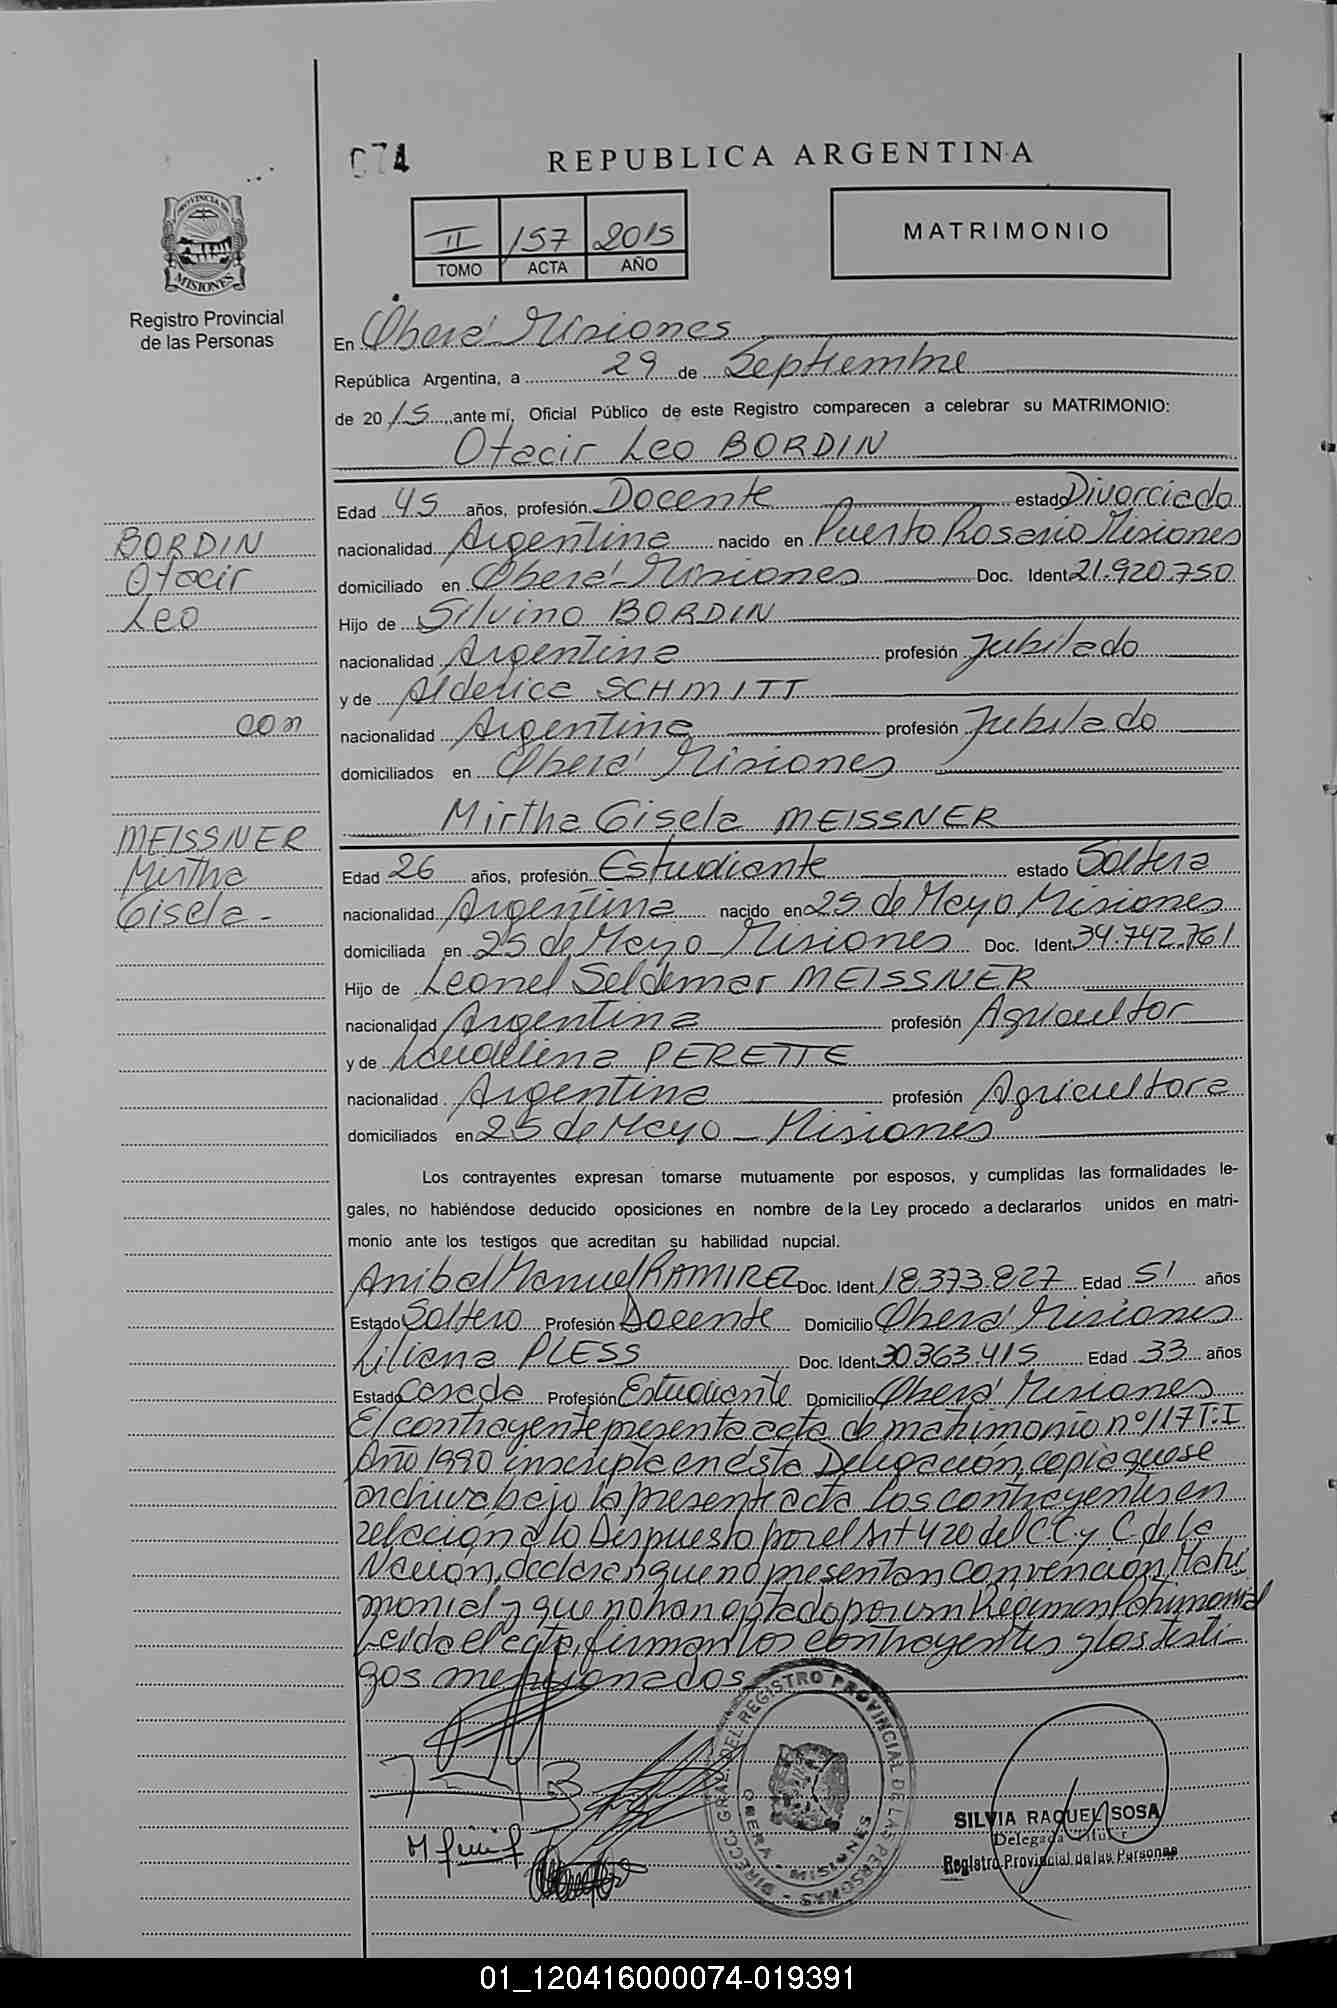 074
REPUBLICA ARGENTINA
II 157 2015
TOMO ACTA AÑO
MATRIMONIO
PROVINCIA DE
MISIONES
Registro Provincial
de las Personas
En Oberá Misiones
República Argentina, a 29 de Septiembre
de 2015 ante mí, Oficial Público de este Registro comparecen a celebrar su MATRIMONIO:
Otacir Leo BORDIN
Edad 45 años, profesión Docente estado Divorciado
nacionalidad Argentina nacido en Puerto Rosario Misiones
domiciliado en Oberá Misiones Doc. Ident 21.920.750
Hijo de Silvino BORDIN
nacionalidad Argentina profesión Jubilado
y de Alderica SCHMITT
nacionalidad Argentina profesión Jubilado
domiciliados en Oberá Misiones
BORDIN
Otacir
Leo
con
MEISSNER
Mirtha
Gisela -
Mirtha Gisela MEISSNER
Edad 26 años, profesión Estudiante estado Soltera
nacionalidad Argentina nacido en 25 de Mayo Misiones
domiciliada en 25 de Mayo Misiones Doc. Ident 34.742.761
Hijo de Leonel Seldemar MEISSNER
nacionalidad Argentina profesión Agricultor
y de Laudelina PERETTE
nacionalidad Argentina profesión Agricultora
domiciliados en 25 de Mayo - Misiones
Los contrayentes expresan tomarse mutuamente por esposos, y cumplidas las formalidades le-
gales, no habiéndose deducido oposiciones en nombre de la Ley procedo a declararlos unidos en matri-
monio ante los testigos que acreditan su habilidad nupcial.
Anibal Manuel RAMIREZ Doc. Ident. 18.373.827 Edad 51 años
Estado Soltero Profesión Docente Domicilio Oberá Misiones
Liliana PLESS Doc. Ident 30363.415 Edad 33 años
Estado Casada Profesión Estudiante Domicilio Oberá Misiones
El contrayente presenta acta de matrimonio nº 117 T: I
Año 1990 inscripta en ésta Delegación, copia que se
archiva bajo la presente acta Los contrayentes en
relación a lo Dispuesto por el Art 420 del C.C. y C. de la
Nación, declaran que no presentan convención Matri
monial y que no han optado por un Régimen Patrimonial
Leida el acta, firman los contrayentes y los testi-
gos mencionados
DIRECC. GRAL. DEL REGISTRO PROVINCIAL DE LAS PERSONAS
OBERA - MISIONES
SILVIA RAQUEL SOSA
Delegada Titular
Registro Provincial de las Personas
01_120416000074-019391